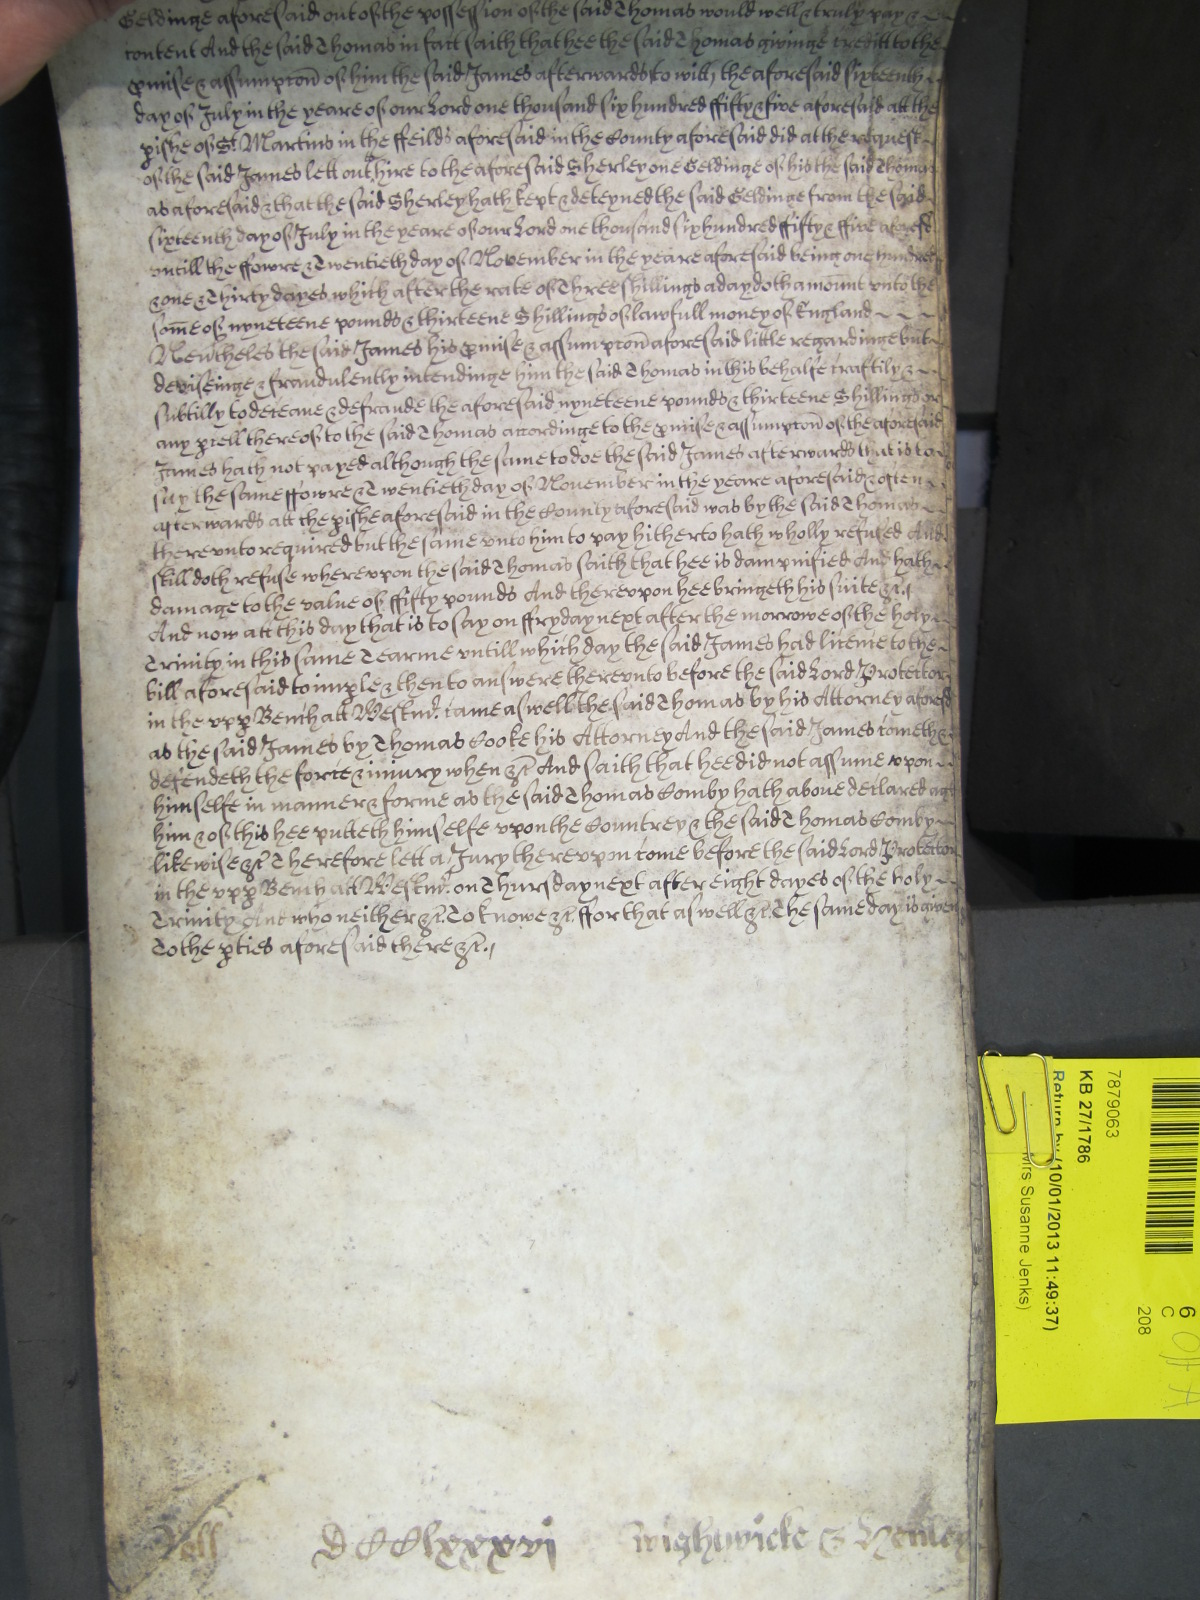 Geldinge aforesaid out of the possession of the said Thomas would well & truly pay &
content And the said Thomas in fact saith that hee the said Thomas givinge creditt to the
pmise & assumpcon of him the said James afterwards to witt the aforesaid sixteenth
day of July in the yeare of our Lord one thousand six hundred ffifty & five aforesaid att the
pishe of St. Martins in the ffeilds aforesaid in the County aforesaid did at the request
of the said James lett out hire to the aforesaid Sherley one Geldinge of his the said Thomas
as aforesaid & that the said Sherley hath kept & deteyned the said Geldinge from the said
sixteenth day of July in the yeare of our Lord one thousand six hundred ffifty & ffive aforesd
untill the ffowre & Twentieth day of November in the yeare aforesaid being one hundred
& one & Thirty dayes which after the rate of Three shillings a day doth amount unto the
some of nyneteene pounds & thirteene Shillings of lawfull money of England
Nevtheles the said James his pmise & assumpcon aforesaid little regardinge but
deviseinge & fraudulently intendinge him the said Thomas in this behalfe craftily &
subtilly to deceave & defraude the aforesaid nyneteene pounds & thirteene Shillings or
any pcell thereof to the said Thomas accordinge to the pmise & assumpcon of the aforesaid
James hath not payed although the same to doe the said James afterwards that is to
say the same ffowre & Twentieth day of November in the yeare aforesaid & often
afterwards att the pishe aforesaid in the County aforesaid was by the said Thomas
thereunto required but the same unto him to pay hitherto hath wholly refused And
still doth refuse whereupon the said Thomas saith that hee is dampnified And hath
damage to the value of ffifty pounds And thereupon hee bringeth his suite &c.
And now att this day that is to say on ffryday next after the morrowe of the holy
Trinity in this same Tearme untill which day the said James had licence to the
bill aforesaid to imple & then to answere thereunto before the said Lord Protector
in the upp Bench att Westmr. came aswell the said Thomas by his Attorney aforesd
as the said James by Thomas Cooke his Attorney And the said James cometh &
defendeth the force & injury when &c And saith that hee did not assume upon
himselfe in manner & forme as the said Thomas Comby hath above declared agt
him & of this hee putteth himselfe upon the Countrey & the said Thomas Comby
likewise &c Therefore lett a Jury thereupon come before the said Lord Protector
in the upp Bench att Westmr. on Thursday next after eight dayes of the holy
Trinity And who neither &c. To knowe &c. ffor that aswell &c. The same day is given
To the pties aforesaid there &c.
Roll DCClxxxvi Wightwicke &
7879063
KB 27/1786
Return by (10/01/2013 11:49:37)
Mrs Susanne Jenks)
6
C
208